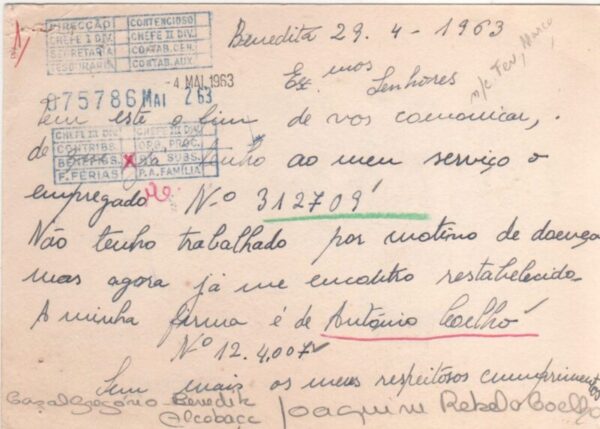 DIRECÇÃO CONTENCIOSO
CHEFE I DIV. CHEFE II DIV.
SECRETARIA CONTAB. CEN.
TESOURARIA CONTAB. AUX.
Benedita 29-4-1963
Exmos Senhores
m/c Fev, Março
-4 MAI. 1963
075786 MAI 2 63
Tem este o fim de vos comonicar,
CHEFE III DIV. CHEFE III DIV.
CONTRIB. ORG. PROC.
BENEFÍCIOS SUBS.
F. FÉRIAS P. A. FAMÍLIA
de que já tenho ao meu serviço o
empregado Nº 312709
Não tenho trabalhado por motivo de doença
mas agora já me encontro restabelecido
A minha firma é de António Coelho
Nº 12.4,007
Sem mais os meus respeitosos cumprimentos
Casal Gregório Benedita
Alcobaça Joaquim Rebelo Coelho